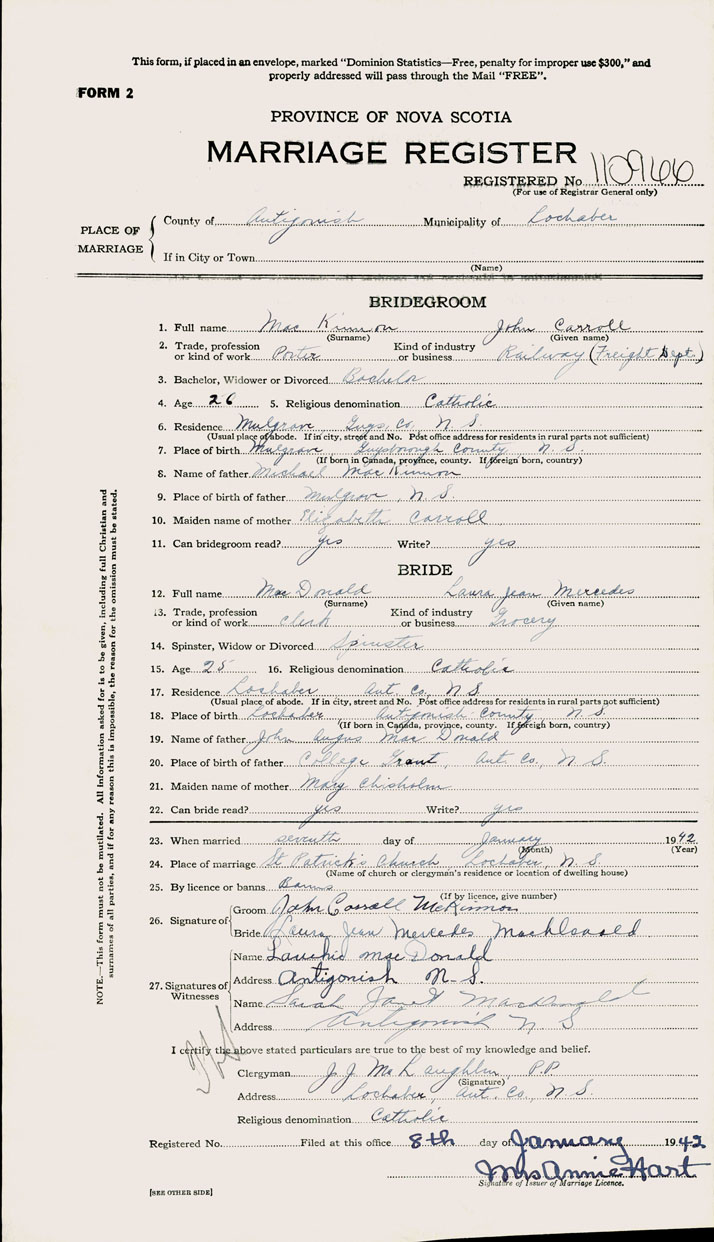 This form, if placed in an envelope, marked "Dominion Statistics—Free, penalty for improper use $300," and
properly addressed will pass through the Mail "FREE".
FORM 2
PROVINCE OF NOVA SCOTIA
MARRIAGE REGISTER
REGISTERED No. 110966
(For use of Registrar General only)
PLACE OF MARRIAGE
County of Antigonish Municipality of Lochaber
If in City or Town
(Name)
BRIDEGROOM
1. Full name Mac Kinnon John Carroll
(Surname) (Given name)
2. Trade, profession or kind of work Porter Kind of industry or business Railway (Freight Dept.)
3. Bachelor, Widower or Divorced Bachelor
4. Age 26 5. Religious denomination Catholic
6. Residence Mulgrave Guys. Co. N. S.
(Usual place of abode. If in city, street and No. Post office address for residents in rural parts not sufficient)
7. Place of birth Mulgrave Guysborough County N. S.
(If born in Canada, province, county. If foreign born, country)
8. Name of father Michael Mac Kinnon
9. Place of birth of father Mulgrave, N. S.
10. Maiden name of mother Elizabeth Carroll
11. Can bridegroom read? yes Write? yes
BRIDE
12. Full name Mac Donald Laura Jean Mercedes
(Surname) (Given name)
13. Trade, profession or kind of work Clerk Kind of industry or business Grocery
14. Spinster, Widow or Divorced Spinster
15. Age 25 16. Religious denomination Catholic
17. Residence Lochaber Ant. Co. N. S.
(Usual place of abode. If in city, street and No. Post office address for residents in rural parts not sufficient)
18. Place of birth Lochaber Antigonish County N. S.
(If born in Canada, province, county. If foreign born, country)
19. Name of father John Angus Mac Donald
20. Place of birth of father College Grant, Ant. Co., N. S.
21. Maiden name of mother Mary Chisholm
22. Can bride read? yes Write? yes
23. When married seventh day of January 1942
(Month) (Year)
24. Place of marriage St Patrick's Church Lochaber, N. S.
(Name of church or clergyman's residence or location of dwelling house)
25. By licence or banns Banns
(If by licence, give number)
26. Signature of
Groom John Carroll McKinnon
Bride Laura Jean Mercedes MacDonald
27. Signatures of Witnesses
Name Lauchie Mac Donald
Address Antigonish N. S.
Name Sarah Janet MacDonald
Address Antigonish N S
I certify the above stated particulars are true to the best of my knowledge and belief.
Clergyman J. J. McLaughlin, P.P.
(Signature)
Address Lochaber, Ant. Co., N. S.
Religious denomination Catholic
Registered No. Filed at this office 8th day of January 1942
Mrs Annie Hart
Signature of Issuer of Marriage Licence.
[SEE OTHER SIDE]
NOTE.—This form must not be mutilated. All information asked for is to be given, including full Christian and
surnames of all parties, and if for any reason this is impossible, the reason for the omission must be stated.